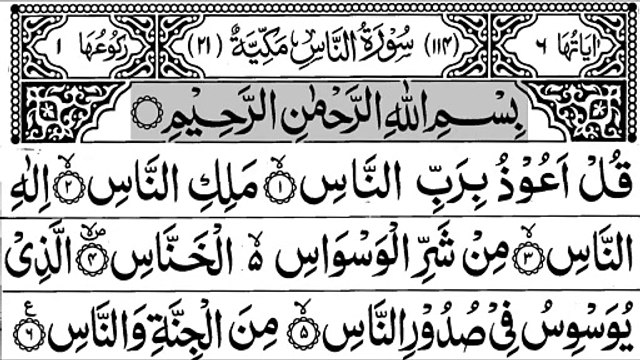 اٰيَاتُهَا ٦ (١١٤) سُوْرَةُ النَّاسِ مَكِّيَّةٌ (٢١) رُكُوْعُهَا ١
بِسْمِ اللّٰهِ الرَّحْمٰنِ الرَّحِيْمِ
قُلْ اَعُوْذُ بِرَبِّ النَّاسِ ۙ﴿١﴾ مَلِكِ النَّاسِ ۙ﴿٢﴾ اِلٰهِ
النَّاسِ ۙ﴿٣﴾ مِنْ شَرِّ الْوَسْوَاسِ ۵ الْخَنَّاسِ ﴿٤﴾ الَّذِيْ
يُوَسْوِسُ فِيْ صُدُوْرِ النَّاسِ ۙ﴿٥﴾ مِنَ الْجِنَّةِ وَالنَّاسِ ﴿٦﴾